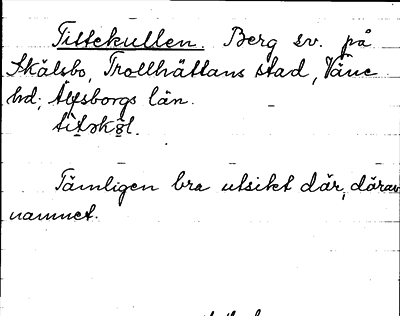 Tittekullen. Berg sv. på
Skälsbo, Trollhättans stad, Väne
hd; Älvsborgs län.
Tämligen bra utsikt där, därav
namnet.